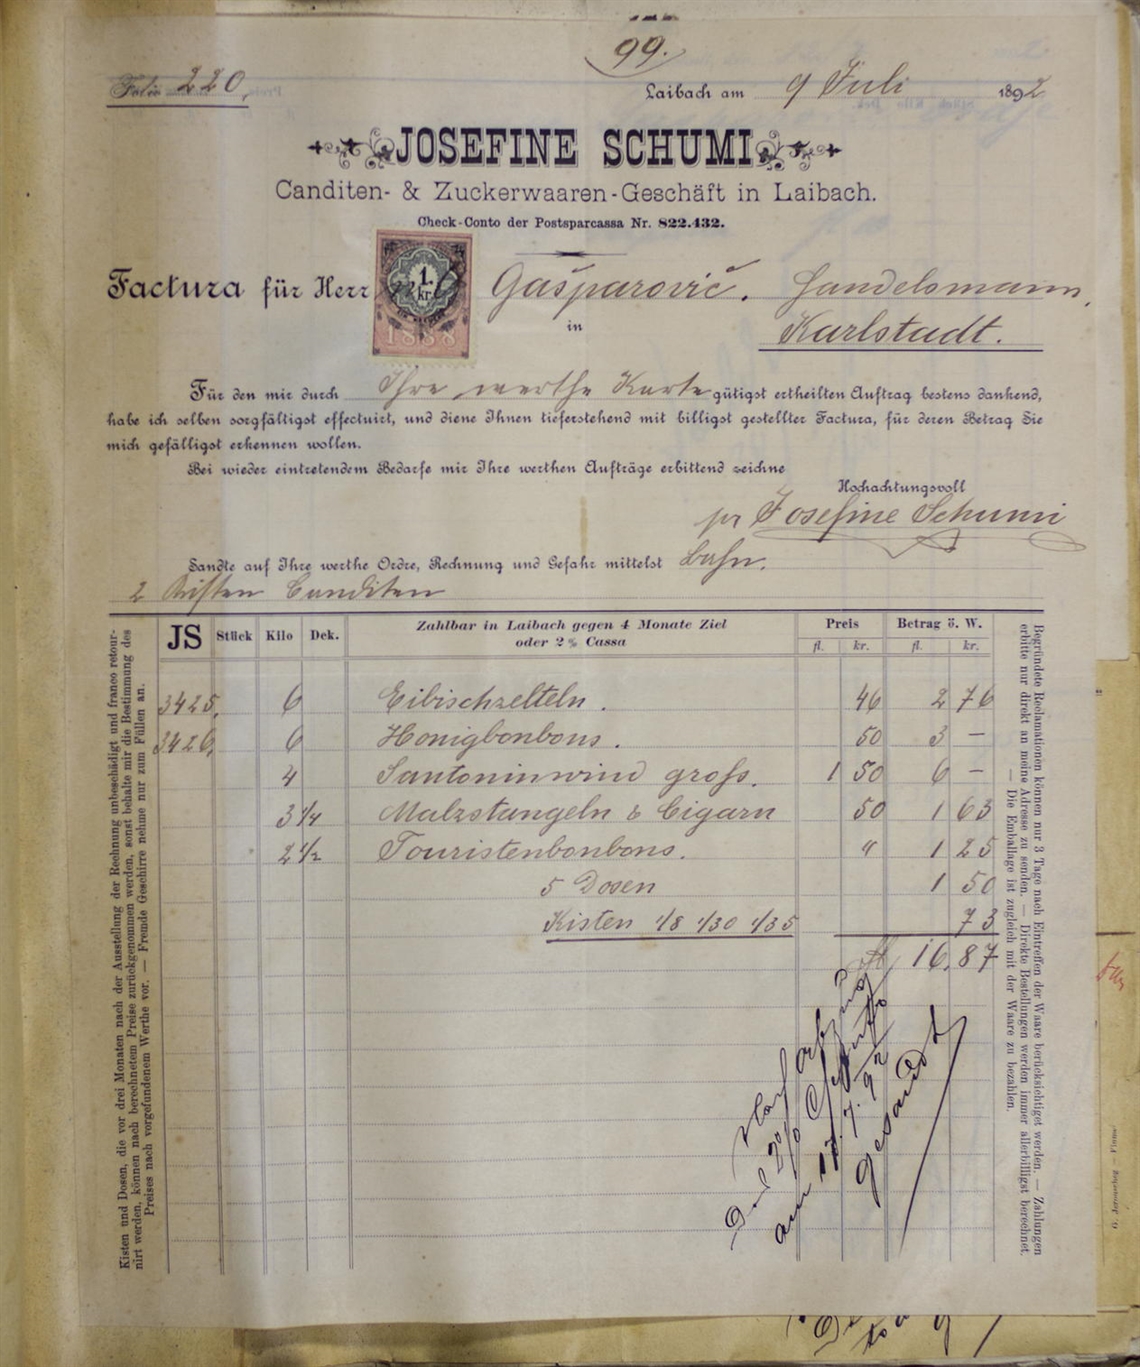 99.
Folio 220.
Laibach am 9 Juli 1892
JOSEFINE SCHUMI
Canditen- & Zuckerwaaren-Geschäft in Laibach.
Check-Conto der Postsparcassa Nr. 822.432.
Factura für Herr Gašparovič. Handelsmann,
1. kr.
1888
in Karlstadt.
Für den mir durch Ihre werthe Karte gütigst ertheilten Auftrag bestens dankend,
habe ich selben sorgfältigst effectuirt, und diene Ihnen tieferstehend mit billigst gestellter Factura, für deren Betrag Sie
mich gefälligst erkennen wollen.
Bei wieder eintretendem Bedarfe mir Ihre werthen Aufträge erbittend zeichne
Hochachtungsvoll
pr Josefine Schumi
Sandte auf Ihre werthe Ordre, Rechnung und Gefahr mittelst Bahn.
2 Kisten Canditen
JS Stück Kilo Dek. Zahlbar in Laibach gegen 4 Monate Ziel Preis Betrag ö. W.
oder 2% Cassa fl. kr. fl. kr.
3425. 6 Eibischzelteln. 46 2 76
3426. 6 Honigbonbons. 50 3 —
4 Santoninwind gross. 1 50 6 —
3 1/4 Malzstangeln & Cigarn 50 1 63
2 1/2 Touristenbonbons. " 1 25
5 Dosen 1 50
Kisten 1/8 1/30 1/35 73
fl 16.87
am 13.7.92
gesandt
Kisten und Dosen, die vor drei Monaten nach der Ausstellung der Rechnung unbeschädigt und franco retour-
nirt werden, können nach berechnetem Preise zurückgenommen werden, sonst behalte mir die Bestimmung des
Preises nach vorgefundenem Werthe vor. — Fremde Geschirre nehme nur zum Füllen an.
Begründete Reclamationen können nur 3 Tage nach Eintreffen der Waare berücksichtiget werden. — Zahlungen
erbitte nur direkt an meine Adresse zu senden. — Direkte Bestellungen werden immer allerbilligst berechnet.
— Die Emballage ist zugleich mit der Waare zu bezahlen.